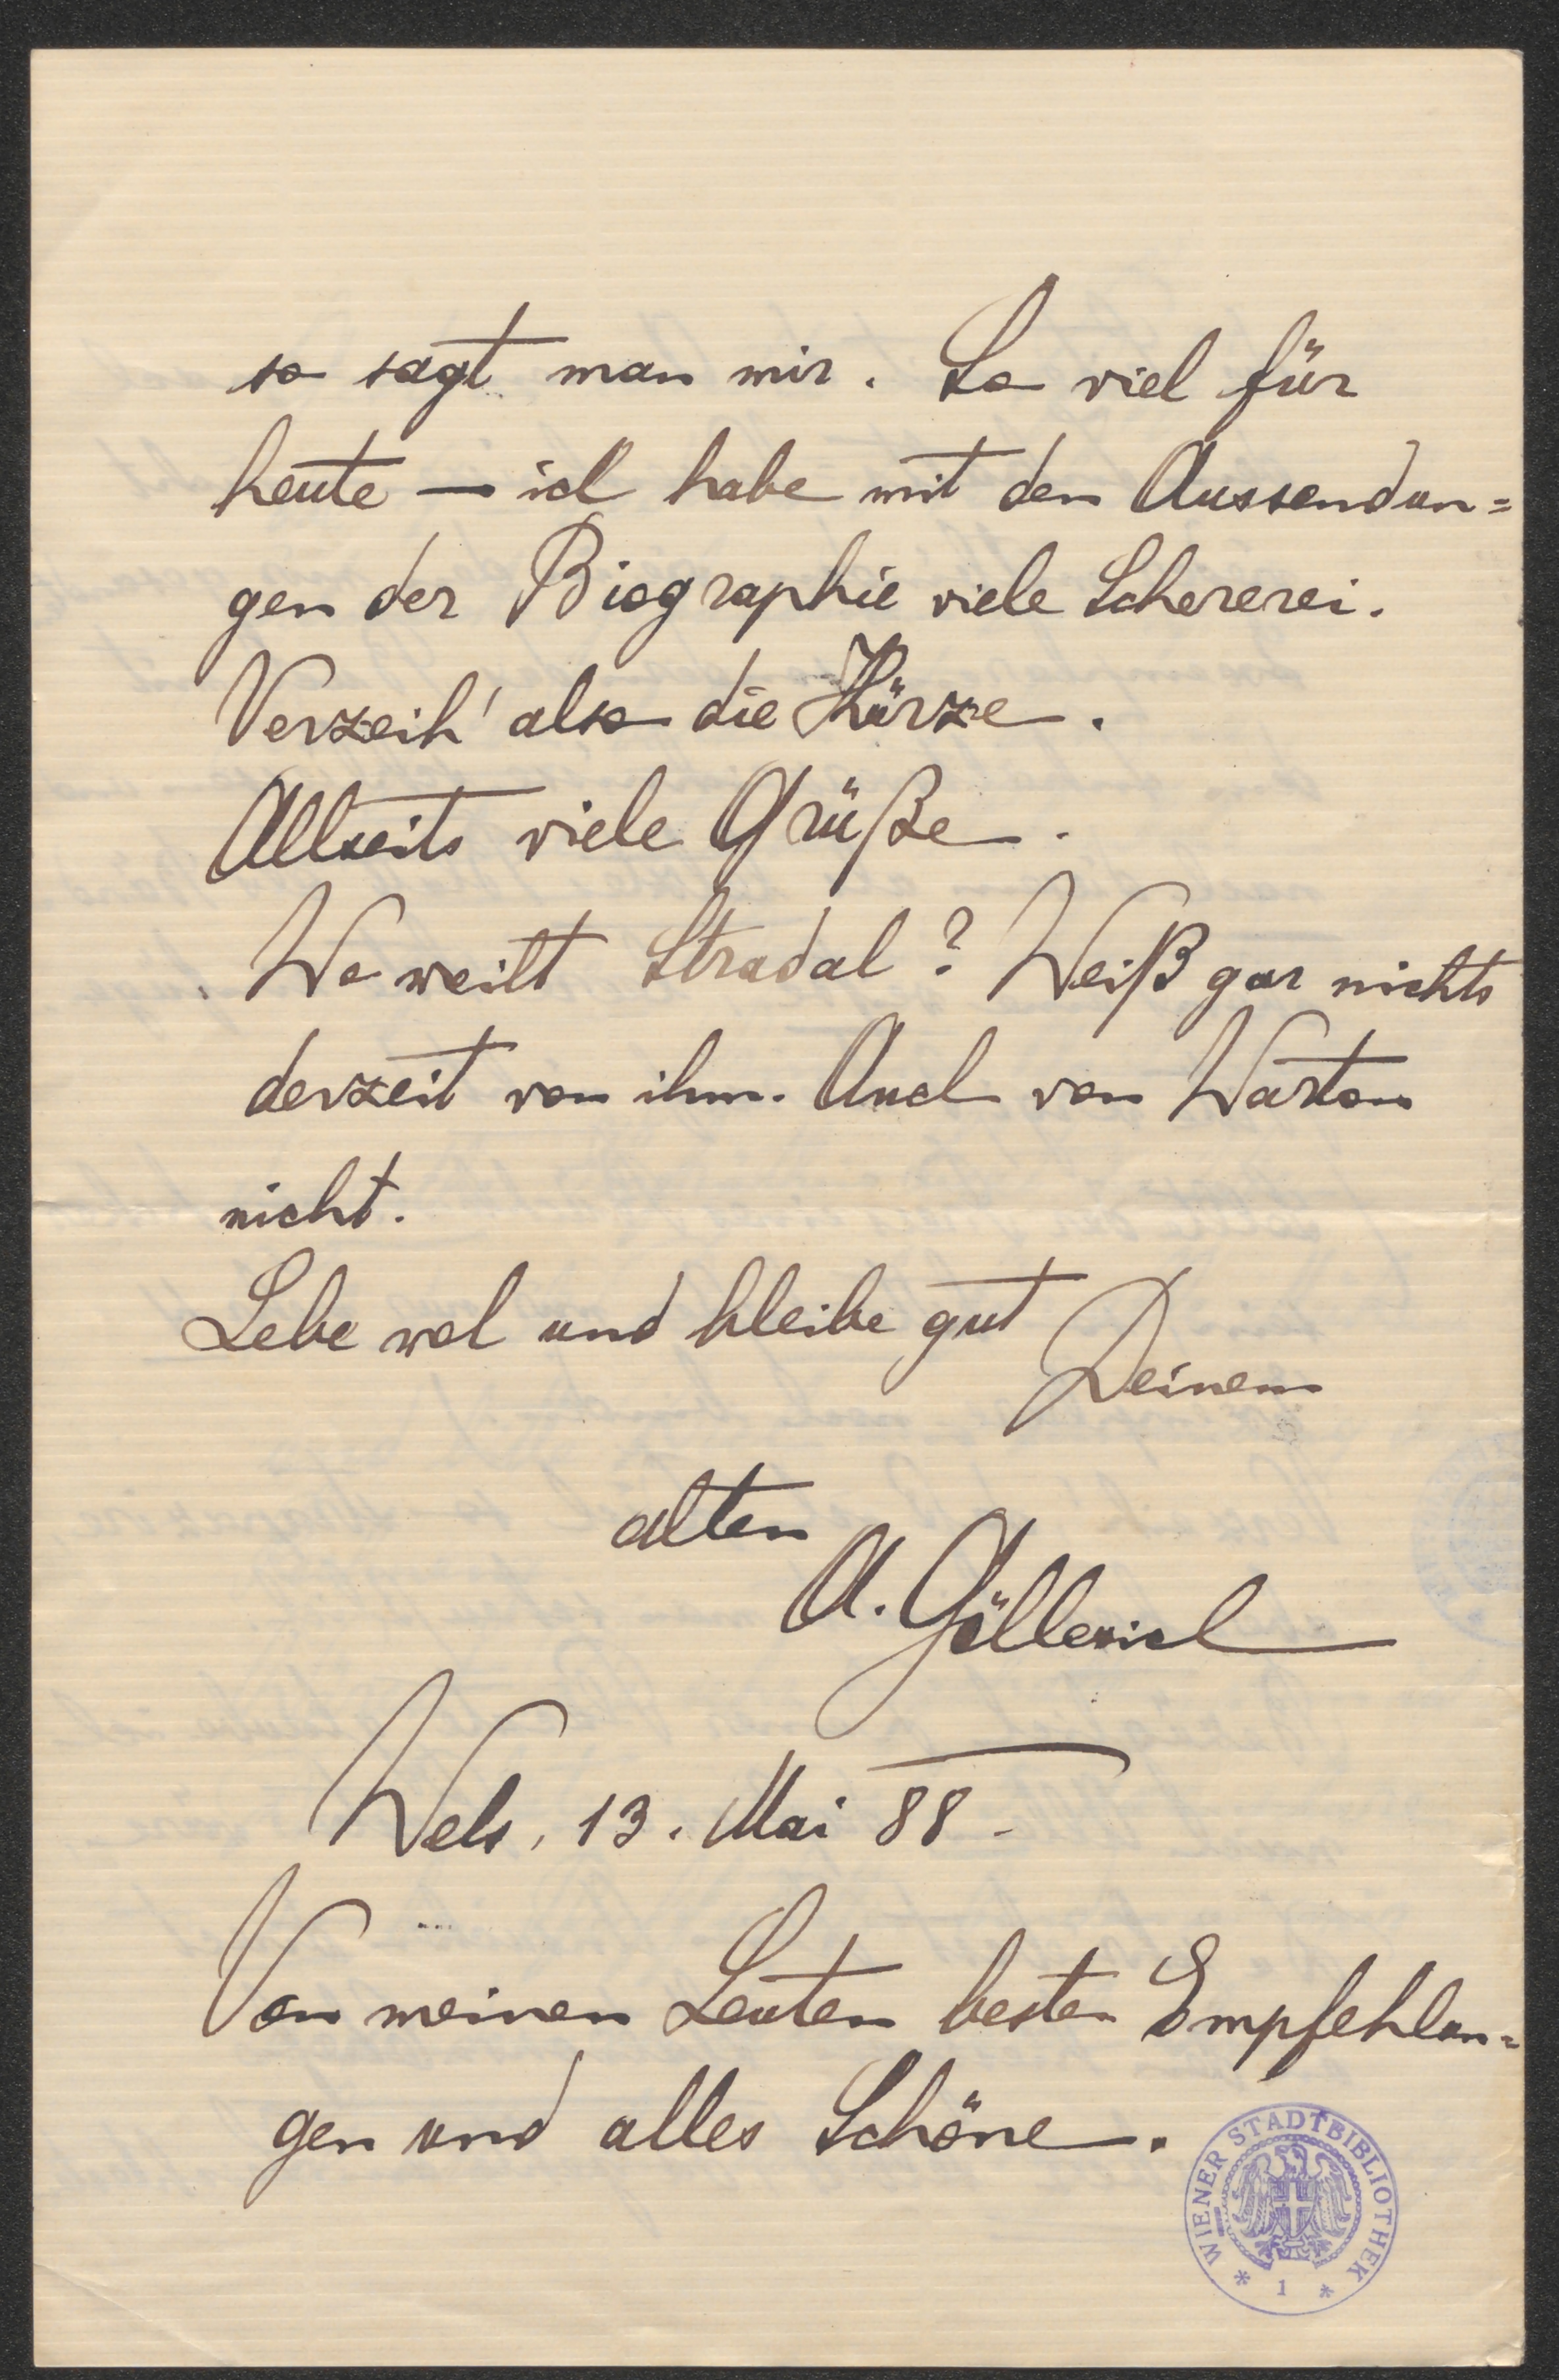 so sagt man mir. So viel für
heute — ich habe mit den Aussendun=
gen der Biographie viele Schererei.
Verzeih' also die Kürze.
Allseits viele Grüße.
Wo weilt Stradal? Weiß gar nichts
derzeit von ihm. Auch von Warton
nicht.
Lebe wol und bleibe gut
Deinem
alten
A. Göllerich
Wels, 13. Mai 88.
Von meinen Leuten besten Empfehlun=
gen und alles Schöne.
WIENER STADTBIBLIOTHEK
* 1 *